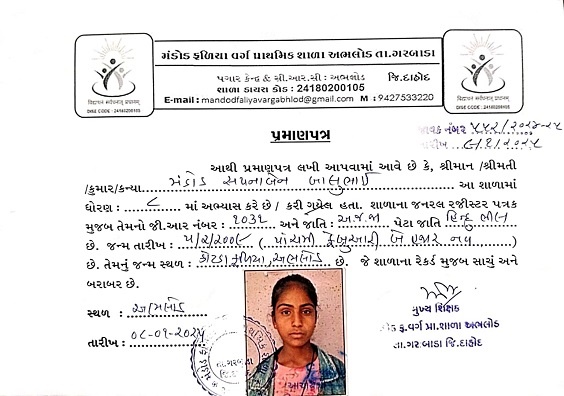 મંડોડ ફળિયા વર્ગ પ્રાથમિક શાળા અભલોડ તા.ગરબાડા
પગાર કેન્દ્ર & સી.આર.સી : અભલોડ જિ.દાહોદ
શાળા ડાયસ કોડ : 24180200105
E-mail : mandodfaliyavargabhlod@gmail.com M : 9427533220
DISE CODE : 24180200105
DISE CODE : 24180200105
પ્રમાણપત્ર
જાવક નંબર ૪૫૨/૨૦૨૪-૨૫
તારીખ ૮/૧/૨૦૨૫
આથી પ્રમાણપત્ર લખી આપવામાં આવે છે કે, શ્રીમાન /શ્રીમતી
/કુમાર/કન્યા મંડોડ સપનાબેન બાબુભાઈ આ શાળામાં
ધોરણ : ૮ માં અભ્યાસ કરે છે / કરી ગયેલ હતા. શાળાના જનરલ રજીસ્ટર પત્રક
મુજબ તેમનો જી.આર નંબર : ૧૦૩૬ અને જાતિ : અ.જ.જા પેટા જાતિ હિન્દુ ભીલ
છે. જન્મ તારીખ : ૫/૨/૨૦૦૯ ( પાંચમી ફેબ્રુઆરી બે હજાર નવ )
છે. તેમનું જન્મ સ્થળ : ફળિયા, અભલોડ છે. જે શાળાના રેકર્ડ મુજબ સાચું અને
બરાબર છે.
સ્થળ : અભલોડ
તારીખ : ૦૮-૦૧-૨૦૨૫
મુખ્ય શિક્ષક
ફ.વર્ગ પ્રા.શાળા અભલોડ
તા.ગરબાડા જિ.દાહોદ
તા.ગરબાડા
જિ.દાહોદ